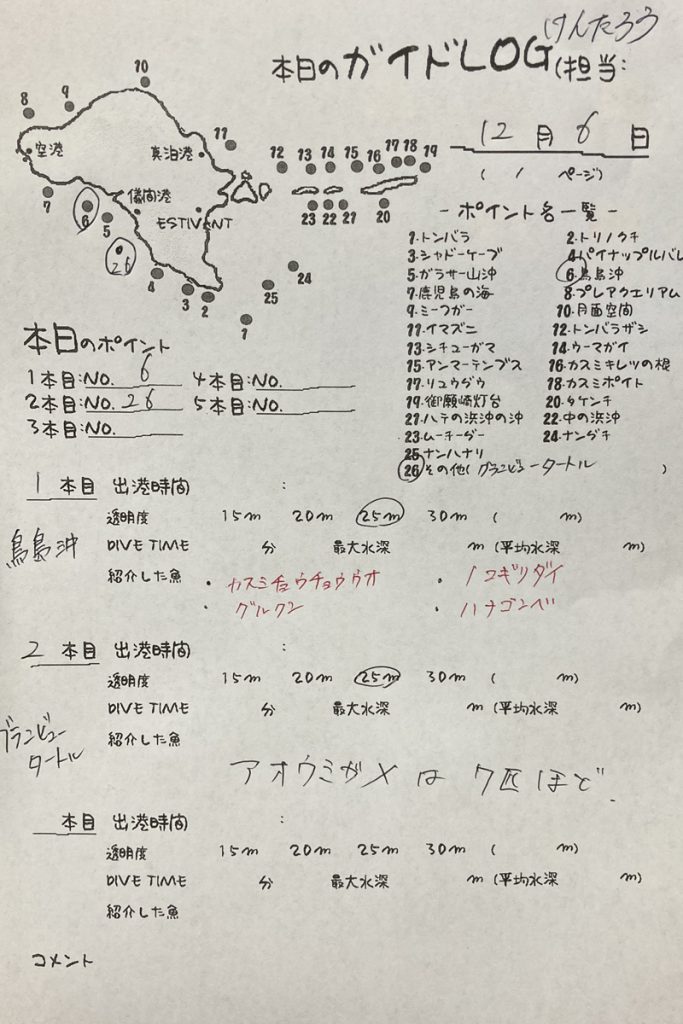 本日のガイドLOG(担当: けんたろう
12月6日
(1ページ)
10
8
9
空港
真泊港
11
12
13
14
15
16
17
18
19
7
儀間港
6
5
ESTIVANT
23
22
21
20
26
4
3
2
24
25
1
-ポイント名一覧-
1.トンバラ 2.トリノクチ
3.シャドーケーブ 4.パイナップルバレ
5.ガラサー山沖 6.鳥島沖
7.鹿児島の海 8.プレアクエリアム
9.ミーフガー 10.月面空間
11.イマズニ 12.トンバラザシ
13.シチューガマ 14.ウーマガイ
15.アンマーテンプス 16.カスミキレツの根
17.リュウグウ 18.カスミポイト
19.御願崎灯台 20.タケンチ
21.ハテの浜沖の沖 22.中の浜沖
23.ムーチーダー 24.ナングチ
25.ナンハナリ
26.その他(グランビュータートル)
本日のポイント
1本目:NO. 6 4本目:NO.
2本目:NO. 26 5本目:NO.
3本目:NO.
1本目 出港時間 :
透明度 15m 20m 25m 30m ( m)
鳥島沖
DIVE TIME 分 最大水深 m(平均水深 m)
紹介した魚 ・カスミチョウチョウウオ ・ノコギリダイ
・グルクン ・ハナゴンベ
2本目 出港時間 :
透明度 15m 20m 25m 30m ( m)
DIVE TIME 分 最大水深 m(平均水深 m)
グランビュー
タートル
紹介した魚
アオウミガメは7匹ほど.
本目 出港時間 :
透明度 15m 20m 25m 30m ( m)
DIVE TIME 分 最大水深 m(平均水深 m)
紹介した魚
コメント